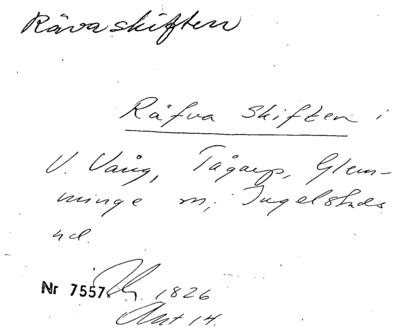 Rävaskiften
Räfva Skiften i
V. Vång, Tågarp, Glem-
minge m, Ingelstads
hd.
Nr 7557 1826
14.